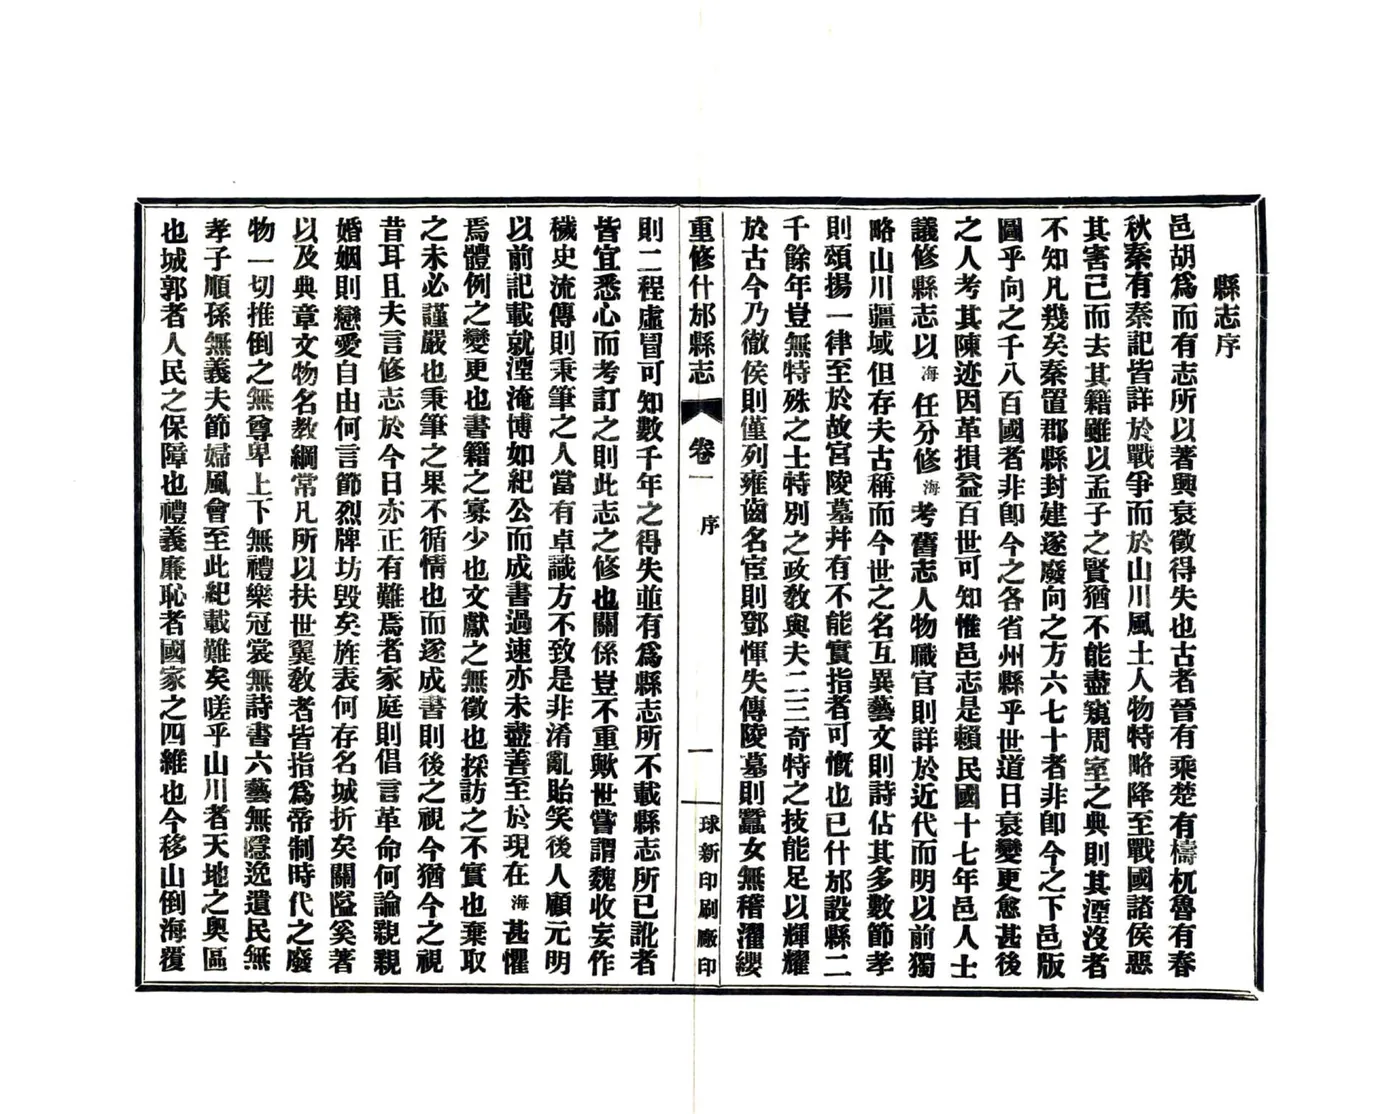 縣志序
邑胡爲而有志所以著興衰徵得失也古者晉有乘楚有檮杌魯有春
秋秦有秦記皆詳於戰爭而於山川風土人物特略降至戰國諸侯惡
其害己而去其籍雖以孟子之賢猶不能盡窺周室之典則其湮沒者
不知凡幾矣秦置郡縣封建遂廢向之方六七十者非卽今之下邑版
圖乎向之千八百國者非卽今之各省州縣乎世道日衰變更愈甚後
之人考其陳迹因革損益百世可知惟邑志是賴民國十七年邑人士
議修縣志以海任分修海考舊志人物職官則詳於近代而明以前獨
略山川疆域但存夫古稱而今世之名互異藝文則詩佔其多數節孝
則頌揚一律至於故宮陵墓幷有不能實指者可慨也已什邡設縣二
千餘年豈無特殊之士特別之政敎與夫二三奇特之技能足以輝耀
於古今乃徹侯則僅列雍齒名宦則鄧惲失傳陵墓則蠶女無稽濯纓
重修什邡縣志 卷一 序 一 球新印刷廠印
則二程虛冒可知數千年之得失並有爲縣志所不載縣志所已訛者
皆宜悉心而考訂之則此志之修也關係豈不重歟世嘗謂魏收妄作
穢史流傳則秉筆之人當有卓識方不致是非淆亂貽笑後人顧元明
以前記載就湮淹博如紀公而成書過速亦未盡善至於現在海甚懼
焉體例之變更也書籍之寡少也文獻之無徵也採訪之不實也棄取
之未必謹嚴也秉筆之果不循情也而遂成書則後之視今猶今之視
昔耳且夫言修志於今日亦正有難焉者家庭則倡言革命何論親親
婚姻則戀愛自由何言節烈牌坊毀矣旌表何存名城折矣關隘奚著
以及典章文物名教綱常凡所以扶世翼敎者皆指爲帝制時代之廢
物一切推倒之無尊卑上下無禮樂冠裳無詩書六藝無隱逸遺民無
孝子順孫無義夫節婦風會至此紀載難矣嗟乎山川者天地之奧區
也城郭者人民之保障也禮義廉恥者國家之四維也今移山倒海覆